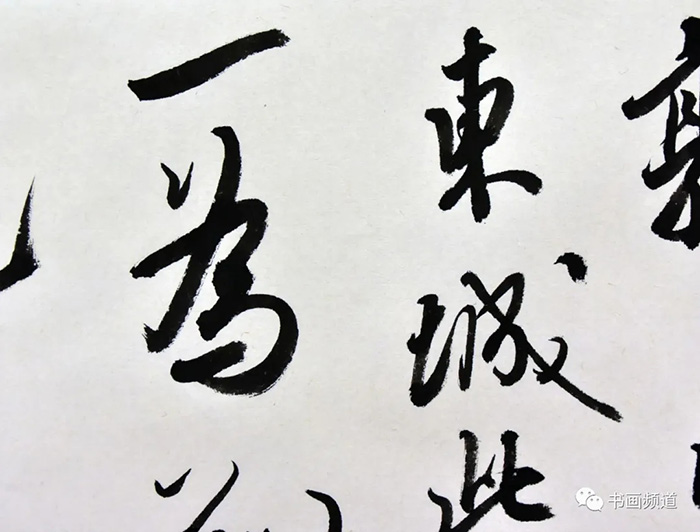 東城此
一為
书画频道